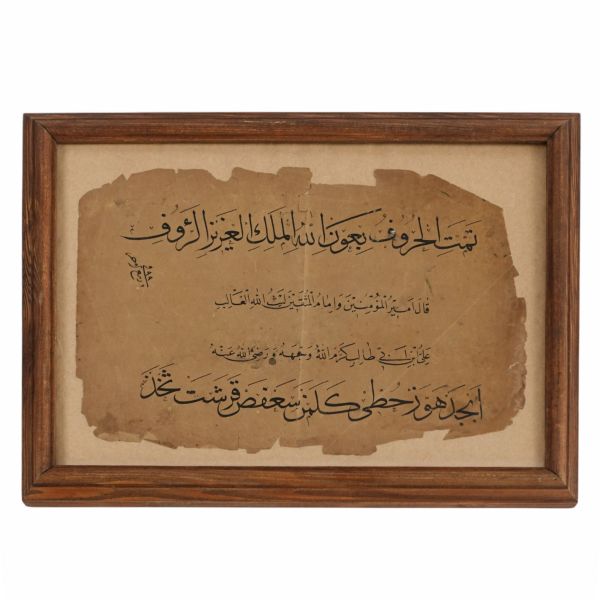 تمت الحروف بعون الله الملك العزيز الرؤوف
قال امير المؤمنين وامام المتقين ليث الله الغالب
علي بن ابي طالب كرم الله وجهه ورضي الله عنه
ابجد هوز حطي كلمن سعفص قرشت ثخذ